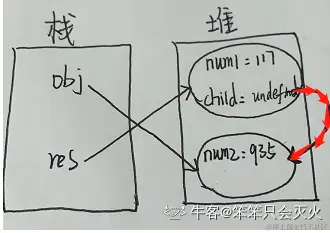 栈
堆
obj
res
num1=117
child=undefined
num2=935
牛客@笨笨只会灭火